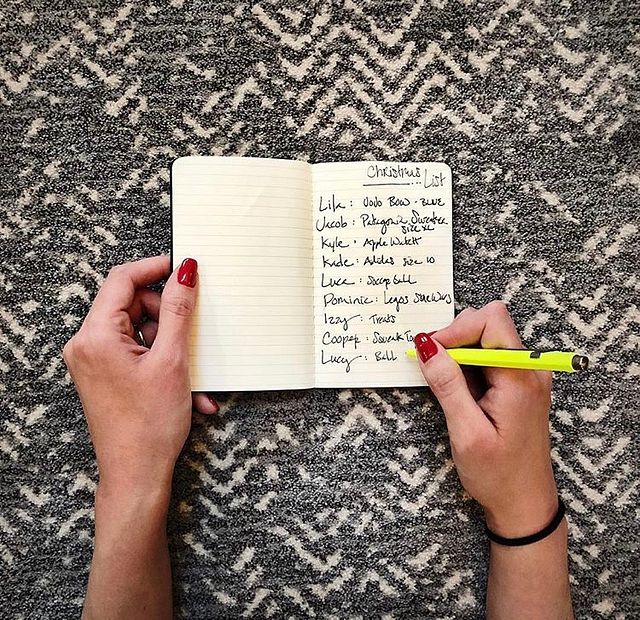 Christmas
... List
Lila : JoJo Bow - BLUE
Jacob : Patagonia Sweater
Size XL
Kyle : Apple Watch
Kade : Adidas Size 10
Luca : Soccer Ball
Dominic : Legos Star Wars
Izzy : Treats
Cooper : Squeak To
Lucy : Ball